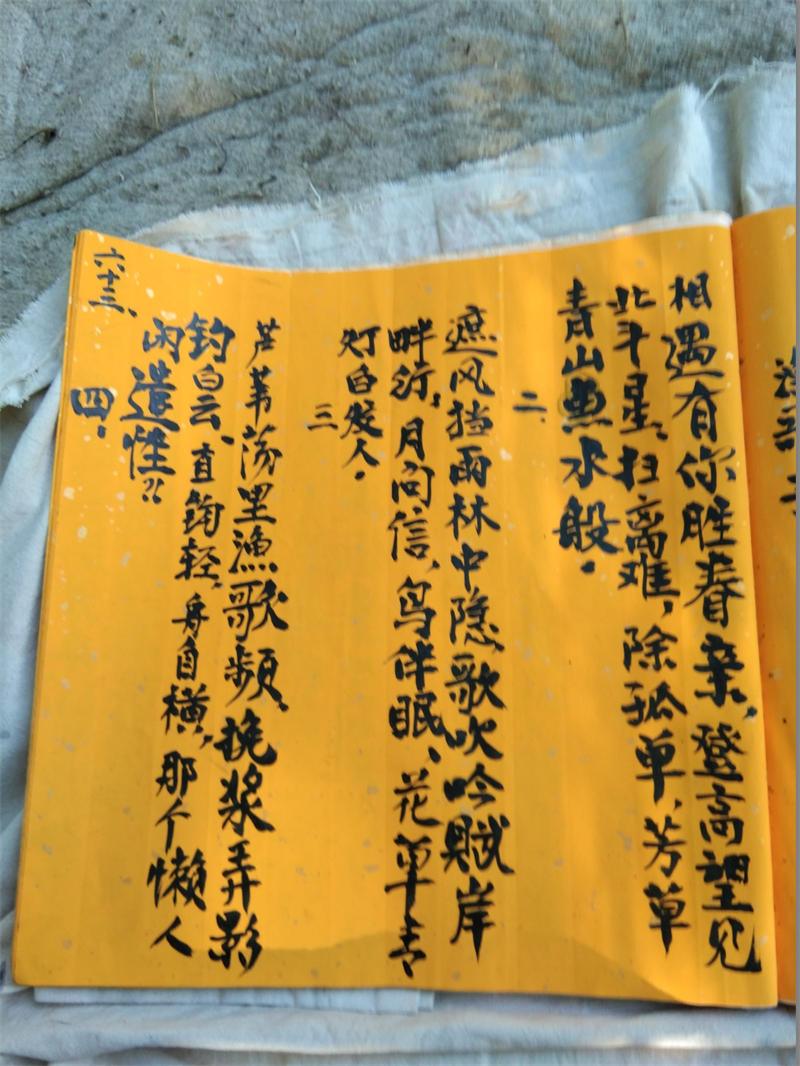 相遇有你胜春亲，登高望见
北斗星、扫离难，除孤单、芳草
青山点水般。
二、
遮风挡雨林中隐、歌吹吟赋岸
畔行，月问信、鸟伴眠、花草青
灯白发人。
三
芦苇荡里渔歌频、挽浆弄影
钓白云、直钩轻、舟自横，那个懒人
闲遣性？！
四、
六十三、